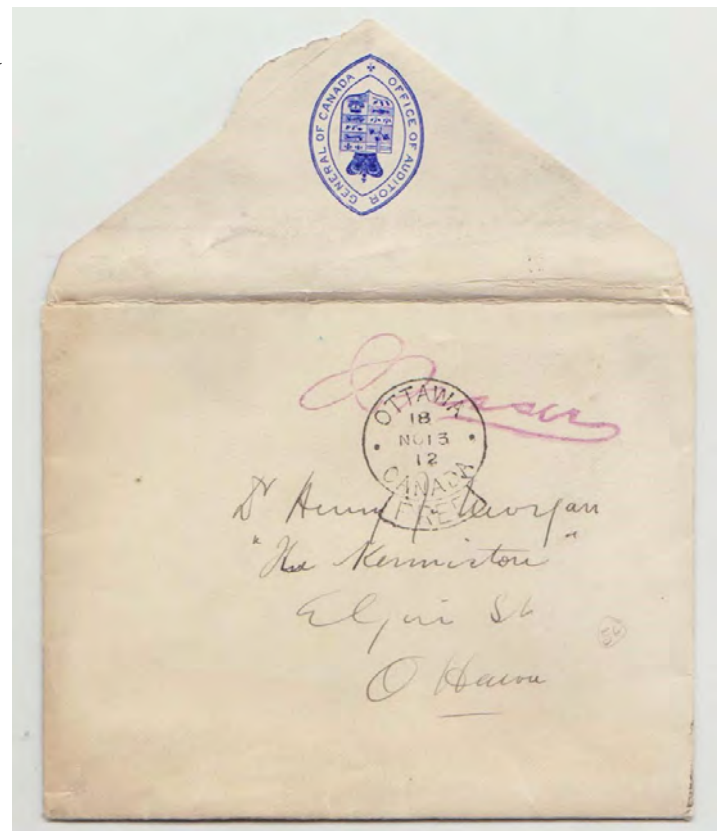 OFFICE OF AUDITOR GENERAL OF CANADA
OTTAWA
18
NO 13
12
CANADA
FREE
Dr Henry J Morgan
"The Kenniston"
Elgin St
Ottawa